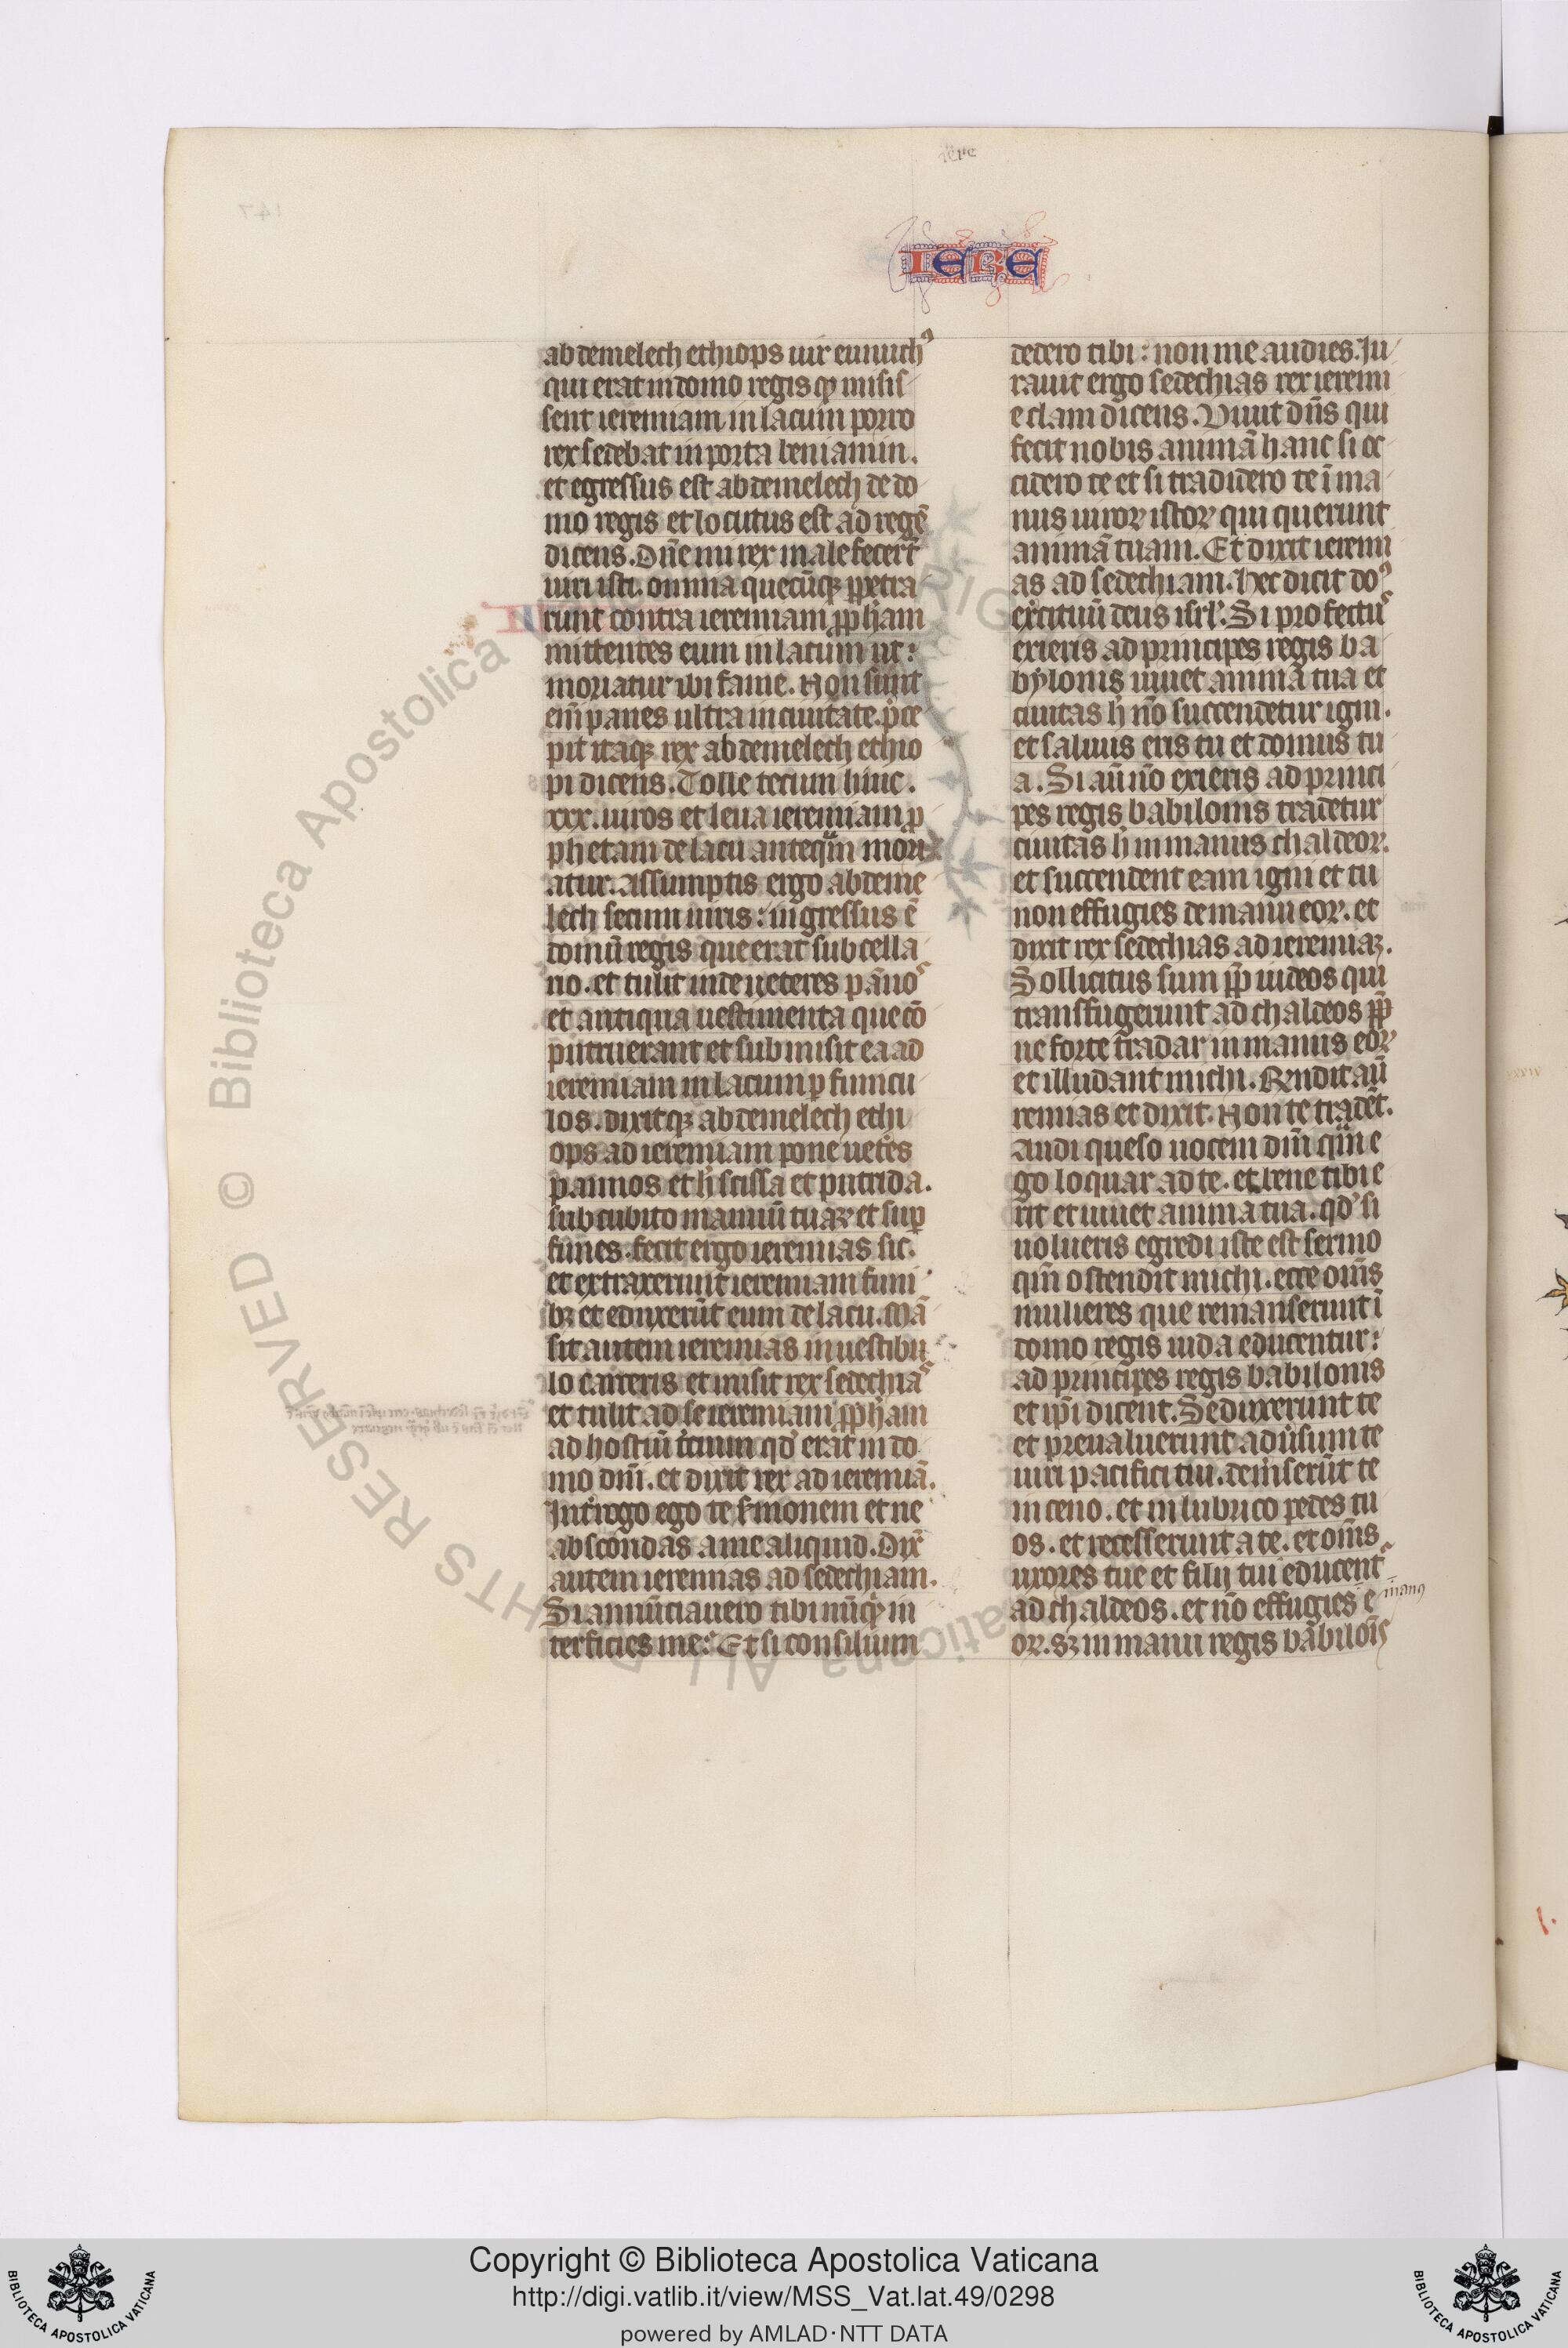 iere
IERE
abdemelech ethiops uir eunuchꝰ
qui erat in domo regis qͥ misis
sent ieremiam in lacum porro
rex sedebat in porta beniamin.
et egressus est abdemelech de do
mo regis et locutus est ad regē
dicens. Dn̄e mi rex male fecerūt
uiri isti. omnia quecūqꝫ ꝑpetra
runt contra ieremiam ꝓph̄am
mittentes eum in lacum ut:
moriatur ibi fame. Non sunt
eni̅ panes ultra in ciuitate. p̄ce
pit itaqꝫ rex abdemelech ethio
pi dicens. Tolle tecum hinc.
xxx. uiros et leua ieremiam ꝓ
phetam de lacu anteqᷓm mori
atur. Assumptis ergo abdeme
lech secum uiris: ingressus ē
domū regis que erat sub cella
rio. et tulit inde ueteres pāno
et antiqua uestimenta que cō
putruerant et submisit ea ad
ieremiam in lacum ꝑ funicu
los. dixitqꝫ abdemelech ethi
ops ad ieremiam pone uet̄es
pannos et h̄ scissa et putrida.
sub cubito manuū tuaꝝ et suꝑ
funes. fecit ergo ieremias sic.
et extraxerunt ieremiam funi
bꝫ et eduxerūt eum de lacu. Mā
sit autem ieremias in uestibu
lo carceris et misit rex sedechia
et tulit ad se ieremiam ꝓph̄am
ad hostiū t̄cium qd̓ erat in do
mo dn̄i. et dixit rex ad ieremiā.
Int̄rogo ego te s̄monem et ne
abscondas a me aliquid. Dix̄
autem ieremias ad sedechiam.
Si annūciauero tibi nūqͥ in
terficies me: Et si consilium
dedero tibi: non me audies. Ju
rauit ergo sedechias rex ieremi
e clam dicens. Viuit dn̄s qui
fecit nobis animā hanc si oc
cidero te et si tradidero te ī ma
nus uiroꝝ istoꝝ qui querunt
animā tuam. Et dixit ieremi
as ad sedechiam. Hec dicit doꝰ
ex̄cituū deus isrl̓. Si profectu
exieris ad principes regis ba
bylonis uiuet anima tua et
ciuitas h̄ nō succendetur igni.
et saluus eris tu et domus tu
a. Si aū nō exieris ad princi
pes regis babilonis tradetur
ciuitas h̄ in manus chaldeoꝝ.
et succendent eam igni et tu
non effugies de manu eoꝝ. et
dixit rex sedechias ad ieremiaꝫ.
Sollicitus sum ꝓp̄ iudeos qui
transfugerunt ad chaldeos ꝓp̄
ne forte tradar in manus eoꝝ
et illudant michi. Rn̄dit aū
remias et dixit. Non te tradēt.
Audi queso uocem dn̄i qᷓm e
go loquar ad te. et bene tibi e
rit et uiuet anima tua. qd̓ si
nolueris egredi iste est sermo
qm̄ ostendit michi. ecce om̄s
mulieres que remanserunt ī
domo regis iuda educentur:
ad principes regis babilonis
et ip̄i dicent. Seduxerunt te
et preualuerunt adūsum te
uiri pacifici tui. dem̄serūt te
in ceno. et in lubrico pedes tu
os. et recesserunt a te. et om̄s
uxores tue et filij tui educent
ad chaldeos. et nō effugies e manꝰ
oꝝ. sꝫ in manu regis babiloīs
© Biblioteca Apostolica Vaticana ALL RIGHTS RESERVED
Copyright © Biblioteca Apostolica Vaticana
http://digi.vatlib.it/view/MSS_Vat.lat.49/0298
powered by AMLAD·NTT DATA
BIBLIOTECA APOSTOLICA VATICANA
BIBLIOTECA APOSTOLICA VATICANA